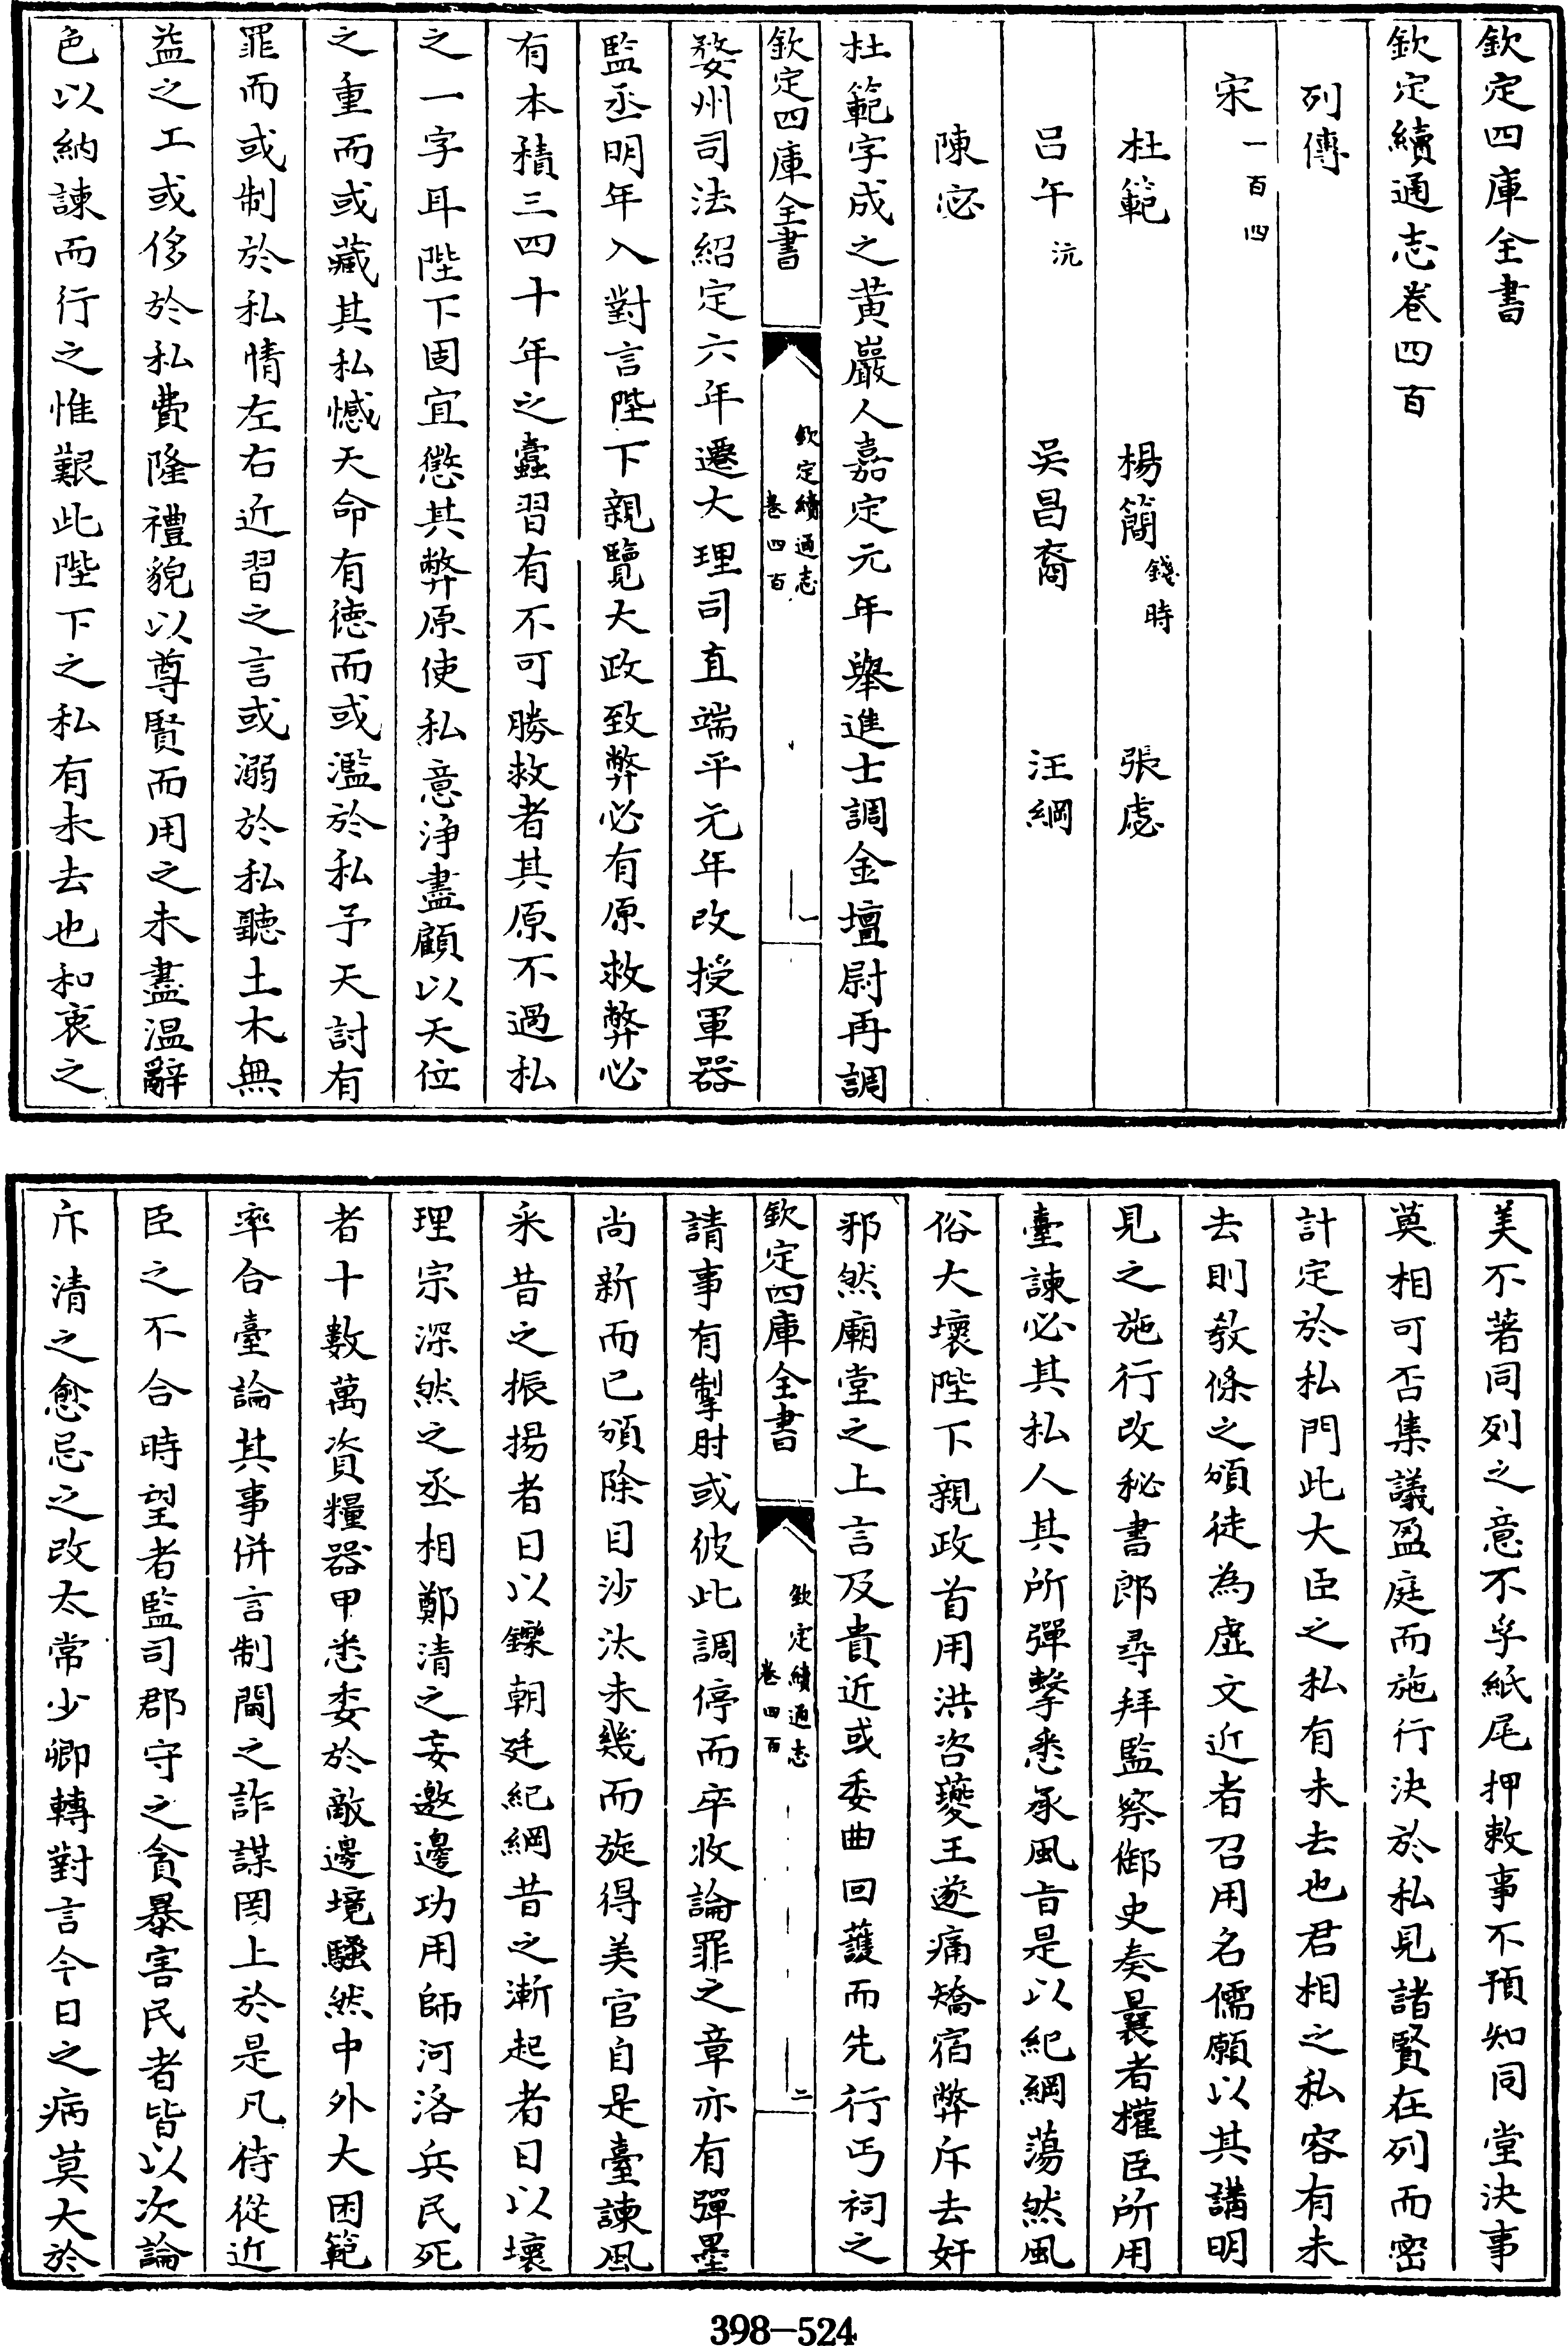 欽定四庫全書
欽定續通志卷四百
列傳
宋一百四
杜範 楊簡錢時 張虙
呂午沆 吳昌裔 汪綱
陳宓
杜範字成之黃巖人嘉定元年舉進士調金壇尉再調
欽定四庫全書
欽定續通志
卷四百
一
婺州司法紹定六年遷大理司直端平元年改授軍器
監丞明年入對言陛下親覽大政致弊必有原救弊必
有本積三四十年之蠹習有不可勝救者其原不過私
之一字耳陛下固宜懲其弊原使私意浄盡顧以天位
之重而或藏其私憾天命有德而或濫於私予天討有
罪而或制於私情左右近習之言或溺於私聽土木無
益之工或侈於私費隆禮貌以尊賢而用之未盡溫辭
色以納諫而行之惟艱此陛下之私有未去也和衷之
美不著同列之意不孚紙尾押敕事不預知同堂決事
莫相可否集議盈庭而施行決於私見諸賢在列而密
計定於私門此大臣之私有未去也君相之私容有未
去則教條之頒徒為虛文近者召用名儒願以其講明
見之施行改秘書郎尋拜監察御史奏曩者權臣所用
臺諫必其私人其所彈擊悉承風旨是以紀綱蕩然風
俗大壞陛下親政首用洪咨夔王遂痛矯宿弊斥去奸
邪然廟堂之上言及貴近或委曲回護而先行丐祠之
欽定四庫全書
欽定續通志
卷四百
二
請事有掣肘或彼此調停而卒收論罪之章亦有彈墨
尚新而已頒除目沙汰未幾而旋得美官自是臺諫風
采昔之振揚者日以鑠朝廷紀綱昔之漸起者日以壞
理宗深然之丞相鄭清之妄邀邊功用師河洛兵民死
者十數萬資糧器甲悉委於敵邊境騷然中外大困範
率合臺論其事併言制閫之詐謀罔上於是凡侍從近
臣之不合時望者監司郡守之貪暴害民者皆以次論
斥清之愈忌之改太常少卿轉對言今日之病莫大於
398-524